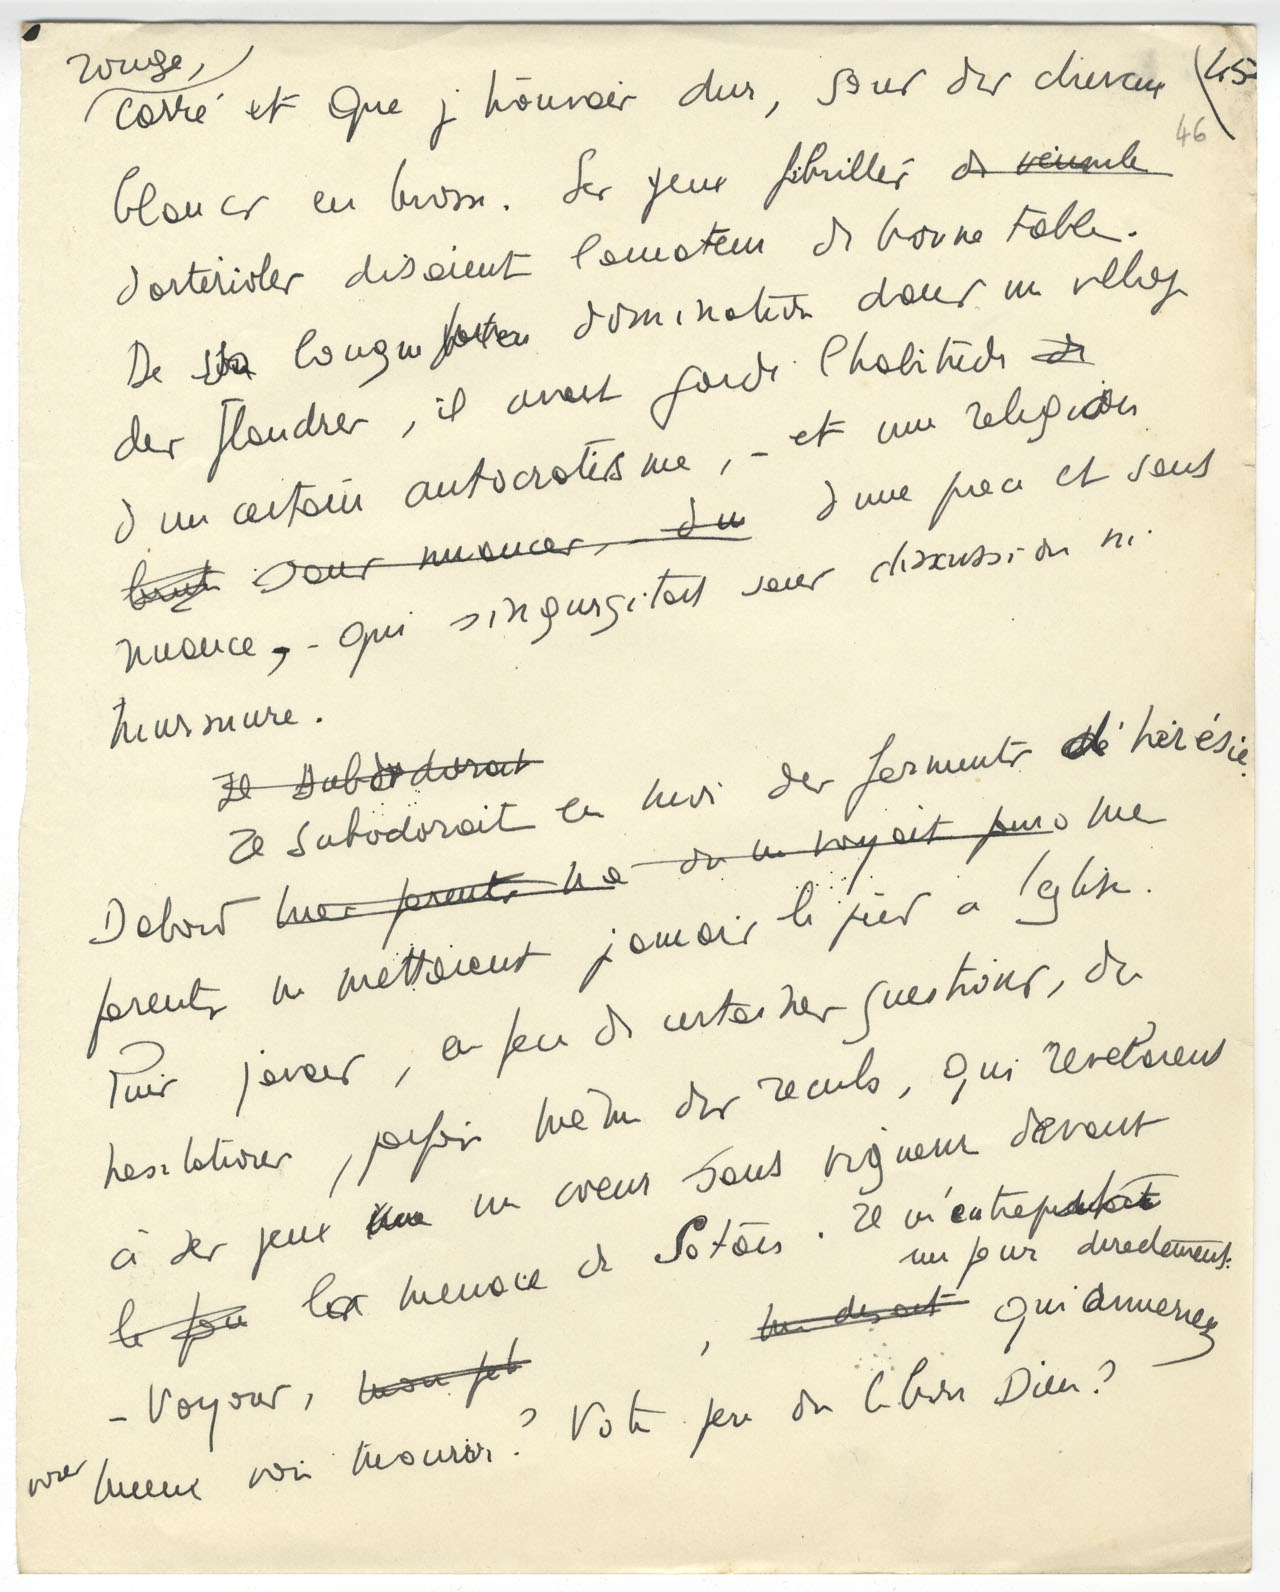 rouge,
carré et que je trouvais dur, sous des cheveux (45
46
blancs en brosse. Ses yeux fibrillés de
d'artérioles disaient l'amateur de bonne table.
De sa longue domination dans un village
des Flandres, il avait gardé l'habitude de
d'un certain autocratisme, - et une religion
brute sans nuances, d'un d'une pièce et sans
nuance, - qui s'ingurgitait sans discussion ni
murmure.
Il subodorait
Il subodorait en moi des ferments d'hérésie.
D'abord mes parents ne on ne voyait pas mes
parents ne mettaient jamais le pied à l'église.
Puis j'avais, en face de certaines questions, des
hésitations, parfois même des reculs, qui révélaient
à ses yeux un coeur sans vigueur devant
le feu la menace de Satan. Il m'entreprit
un jour directement:
- Voyons, mon fils , me disait Qui aimeriez
vous mieux voir mourir? Votre père ou le bon Dieu?